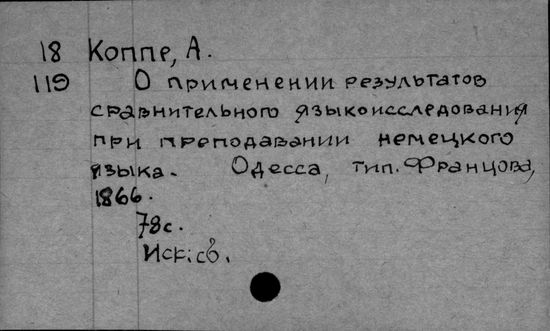 18 Коппе, А.
119 О применении результатов
сравнительного языкоисследования
при преподавании немецкого
языка. Одесса, тип. Францова,
1866.
78с.
Иск: св.